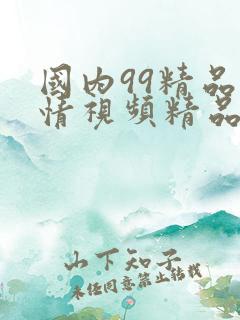 國内99精品
情視頻精品
山下知子
未经同意禁止转载